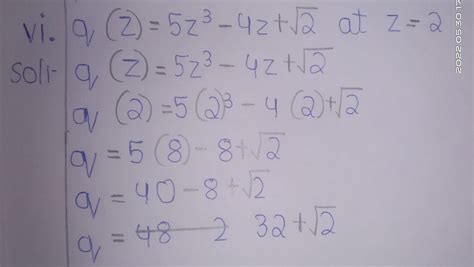 vi. q(z) = 5z³ - 4z + √2 at z = 2
Sol:- q(z) = 5z³ - 4z + √2
q(2) = 5(2)³ - 4(2) + √2
q = 5(8) - 8 + √2
q = 40 - 8 + √2
q = 48 2 32 + √2